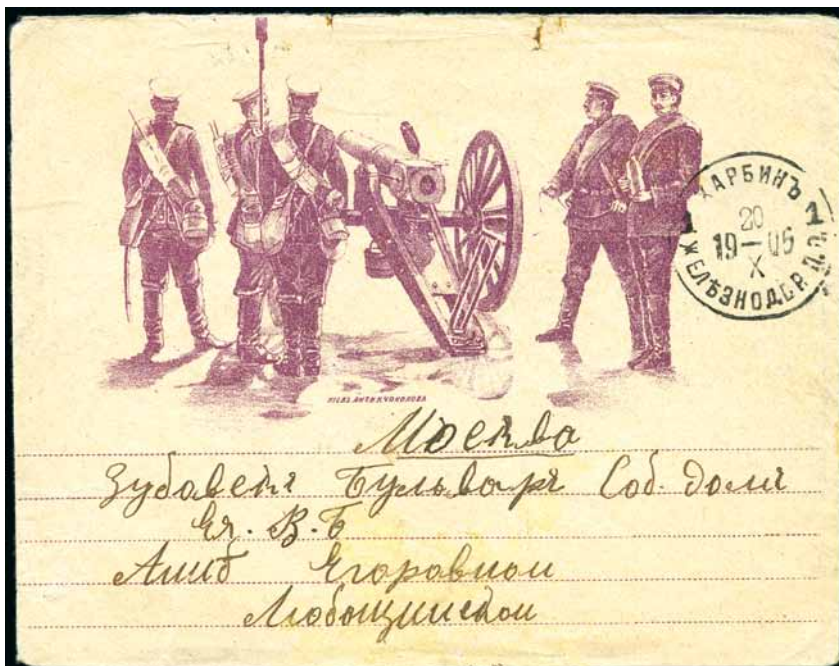 ХАРБИНЪ
1 1
20
19 — 05
X
ЖЕЛѢЗНОДОР. П. О.
Москва
Зубовскг Бульваръ Соб. домъ
Ея. В. Б
Аннѣ Егоровной
Любощинской